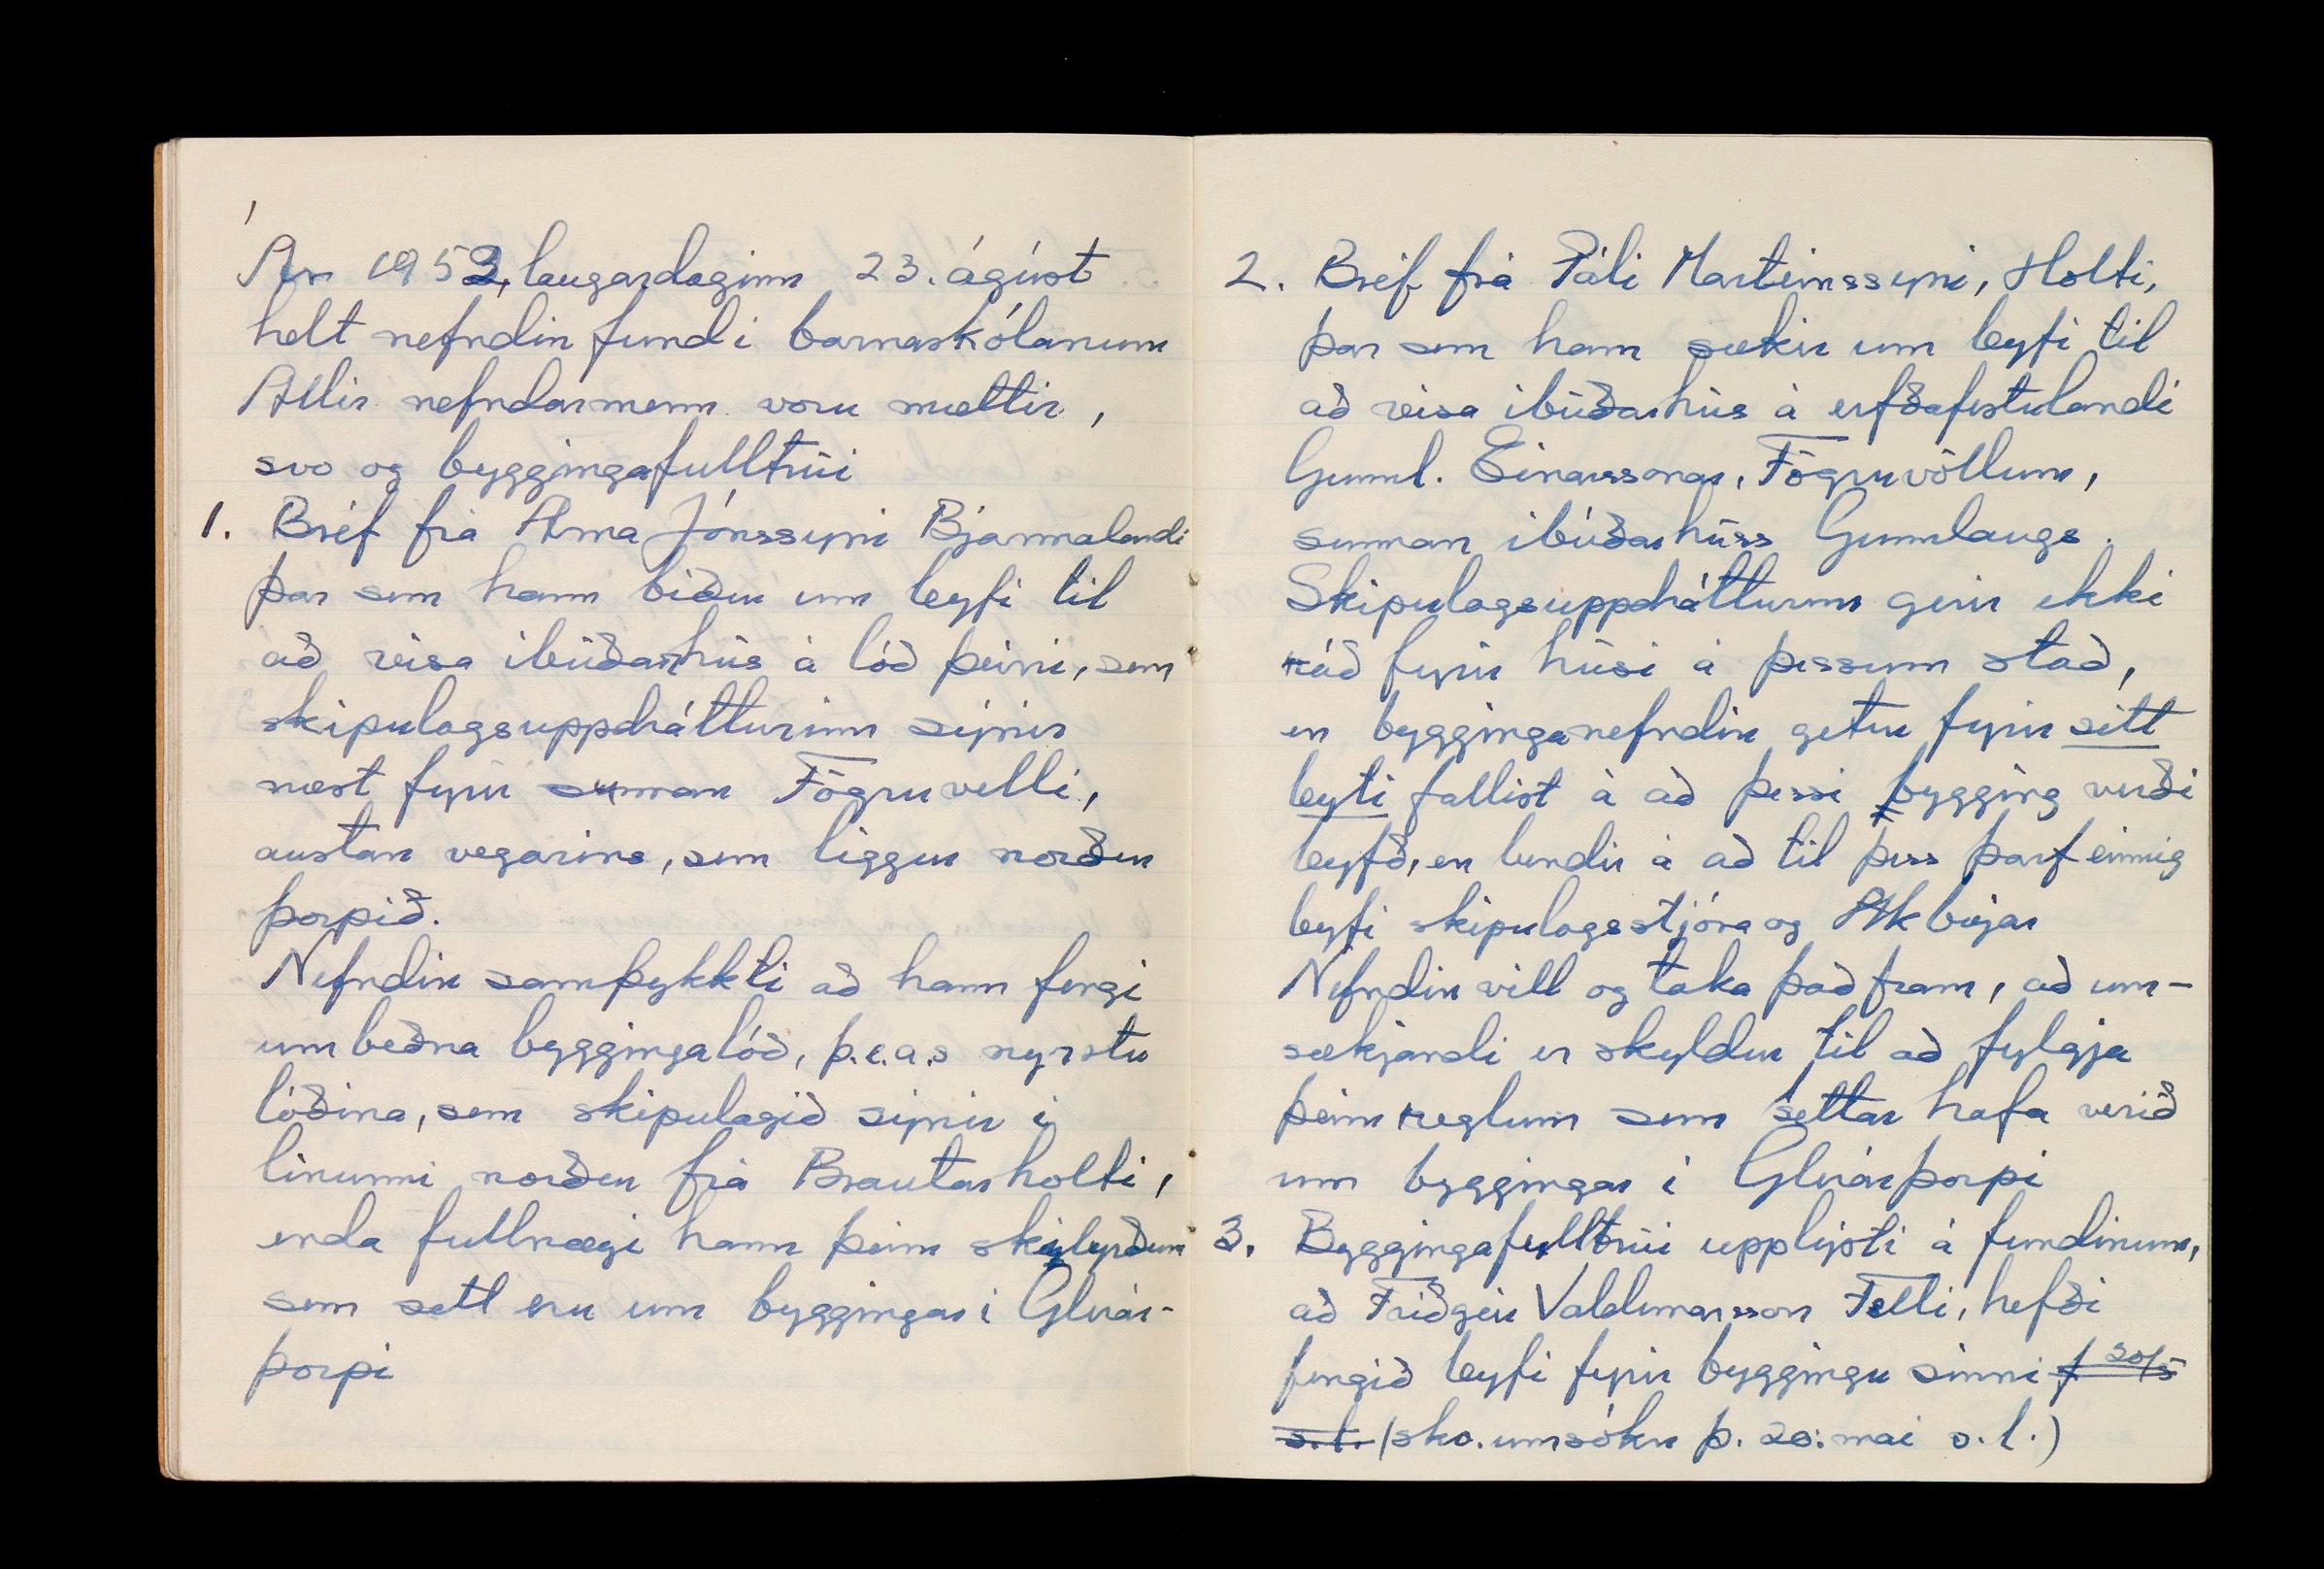 Ár 1952, laugardaginn 23. ágúst
helt nefndin fund i barnaskólanum
Allir nefndarmenn voru mættir,
svo og byggingafulltrúi
1. Bréf frá Árna Jónssyni Bjarmalandi
þar sem hann biður um leyfi til
að reisa ibúðarhús á lóð þeirri, sem
skipulagsuppdrátturinn sýnir
næst fyrir sunnan Fögruvelli,
austan vegarins, sem liggur norður
þorpið.
Nefndin samþykkti að hann fengi
umbeðna byggingalóð, þ.e.a.s nyrstu
lóðina, sem skipulagið sýnir i
linunni norður frá Brautarholti,
enda fullnægi hann þeim skilyrðum
sem sett eru um byggingar i Glerár-
þorpi
2. Bréf frá Páli Marteinssyni, Holti,
þar sem hann sækir um leyfi til
að reisa ibúðarhús á erfðafestulandi
Gunnl. Einarssonar, Fögruvöllum,
sunnan ibúðarhúss Gunnlaugs.
Skipulagsuppdrátturinn gerir ekki
ráð fyrir húsi á þessum stað,
en bygginganefndin getur fyrir sitt
leyti fallist á að þessi bygging verði
leyfð, en bendir á að til þess þarf einnig
leyfi skipulagsstjóra og Akbæjar
Nefndin vill og taka það fram, að um-
sækjandi er skyldur til að fylgja
þeim reglum sem settar hafa verið
um byggingar i Glerárþorpi
3. Byggingafulltrúi upplýsti á fundinum,
að Friðgeir Valdimarsson Felli, hefði
fengið leyfi fyrir byggingu sinni f 20/5
s.l. (sbr. umsókn þ. 20. mai s.l.)